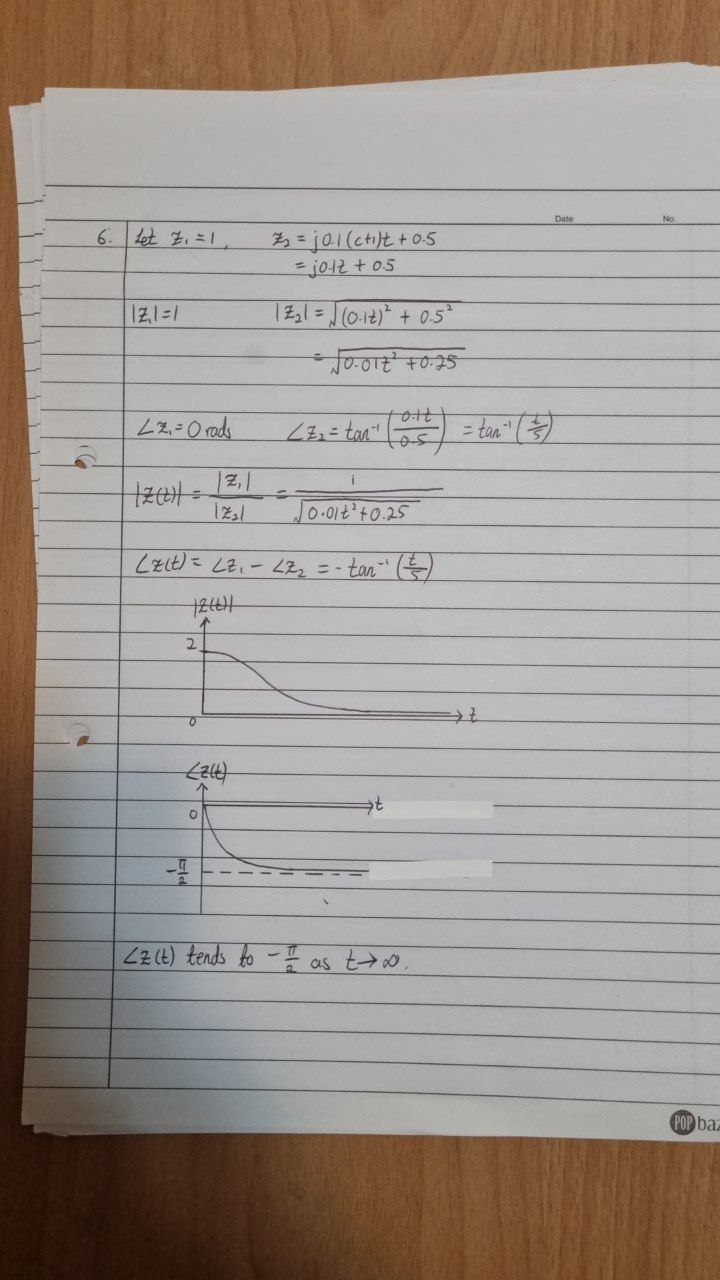 Date No.
6. Let z₁ = 1, z₂ = j0.1(c+1)t + 0.5
= j0.1t + 0.5
|z₁| = 1 |z₂| = √((0.1t)² + 0.5²)
= √(0.01t² + 0.25)
∠z₁ = 0 rads ∠z₂ = tan⁻¹(0.1t/0.5) = tan⁻¹(t/5)
|z(t)| = |z₁|/|z₂| = 1/√(0.01t² + 0.25)
∠z(t) = ∠z₁ - ∠z₂ = -tan⁻¹(t/5)
|z(t)|
2
0 t
∠z(t)
0 t
-π/2
∠z(t) tends to -π/2 as t → ∞.
POP